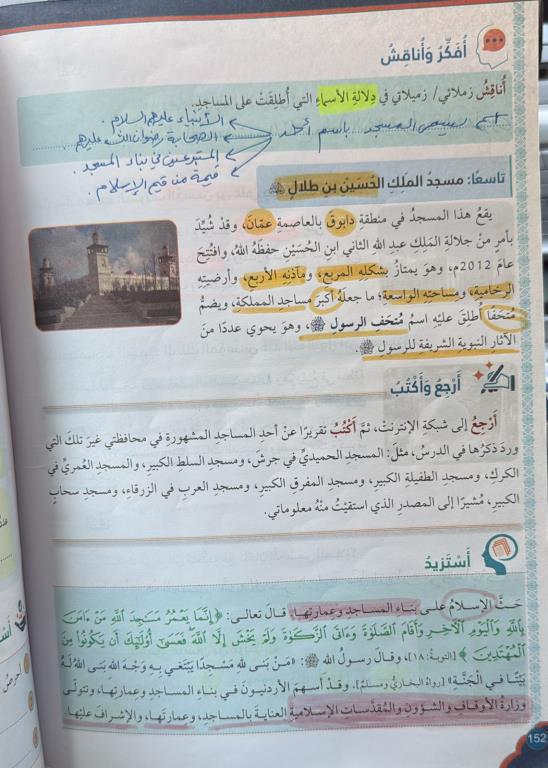 أُفَكِّرُ وَأُناقِشُ
أُناقِشُ زملائي/ زميلاتي في دِلالةِ الأسماءِ التي أُطلِقَتْ على المساجدِ.
المسجد باسم أحد
الأنبياء عليهم السلام.
الصحابة رضوان الله عليهم.
المتبرعين في بناء المسجد.
قيمة من قيم الإسلام.
تاسعًا: مسجدُ المَلِكِ الحُسَيْنِ بنِ طلالٍ
يقعُ هذا المسجدُ في منطقةِ دابوقَ بالعاصمةِ عمّانَ، وقدْ شُيِّدَ
بأمرٍ منْ جلالةِ المَلِكِ عبدِ اللهِ الثاني ابنِ الحُسَيْنِ حفظَهُ اللهُ، وافتُتِحَ
عامَ 2012م، وهوَ يمتازُ بشكلِهِ المربعِ، ومآذنِهِ الأربعِ، وأرضيتِهِ
الرخاميةِ، ومساحتِهِ الواسعةِ؛ ما جعلَهُ أكبرَ مساجدِ المملكةِ، ويضمُّ
مُتحَفًا أُطلِقَ عليْهِ اسمُ مُتحَفِ الرسولِ ﷺ، وهوَ يحوي عددًا منَ
الآثارِ النبويةِ الشريفةِ للرسولِ ﷺ.
أَرْجِعُ وَأَكْتُبُ
أَرْجِعُ إلى شبكةِ الإنترنتْ، ثمَّ أَكْتُبُ تقريرًا عنْ أحدِ المساجدِ المشهورةِ في محافظتي غيرَ تلكَ التي
وردَ ذكرُها في الدرسِ، مثلَ: المسجدِ الحميديِّ في جرشَ، ومسجدِ السلطِ الكبيرِ، والمسجدِ العُمَريِّ في
الكركِ، ومسجدِ الطفيلةِ الكبيرِ، ومسجدِ المفرقِ الكبيرِ، ومسجدِ العربِ في الزرقاءِ، ومسجدِ سحابٍ
الكبيرِ، مُشيرًا إلى المصدرِ الذي استقيْتُ منْهُ معلوماتي.
أَسْتَزيدُ
حَثَّ الإسلامُ على بناءِ المساجدِ وعِمارتِها، قالَ تعالى: ﴿إِنَّمَا يَعْمُرُ مَسَٰجِدَ ٱللَّهِ مَنْ ءَامَنَ
بِٱللَّهِ وَٱلْيَوْمِ ٱلْءَاخِرِ وَأَقَامَ ٱلصَّلَوٰةَ وَءَاتَى ٱلزَّكَوٰةَ وَلَمْ يَخْشَ إِلَّا ٱللَّهَ فَعَسَىٰٓ أُو۟لَٰٓئِكَ أَن يَكُونُوا۟ مِنَ
ٱلْمُهْتَدِينَ﴾ [التوبةُ: ١٨]، وقالَ رسولُ اللهِ ﷺ: «مَنْ بَنى لِلهِ مَسْجِدًا يَبْتَغي بِهِ وَجْهَ اللهِ بَنى اللهُ لَهُ
بَيْتًا في الْجَنَّةِ» [رواهُ البخاريُّ ومسلمٌ]. وقدْ أسهمَ الأردنيونَ في بناءِ المساجدِ وعِمارتِها، وتتولّى
وزارةُ الأوقافِ والشؤونِ والمُقدَّساتِ الإسلاميةِ العنايةَ بالمساجدِ، وعِمارتِها، والإشرافَ عليْها.
152